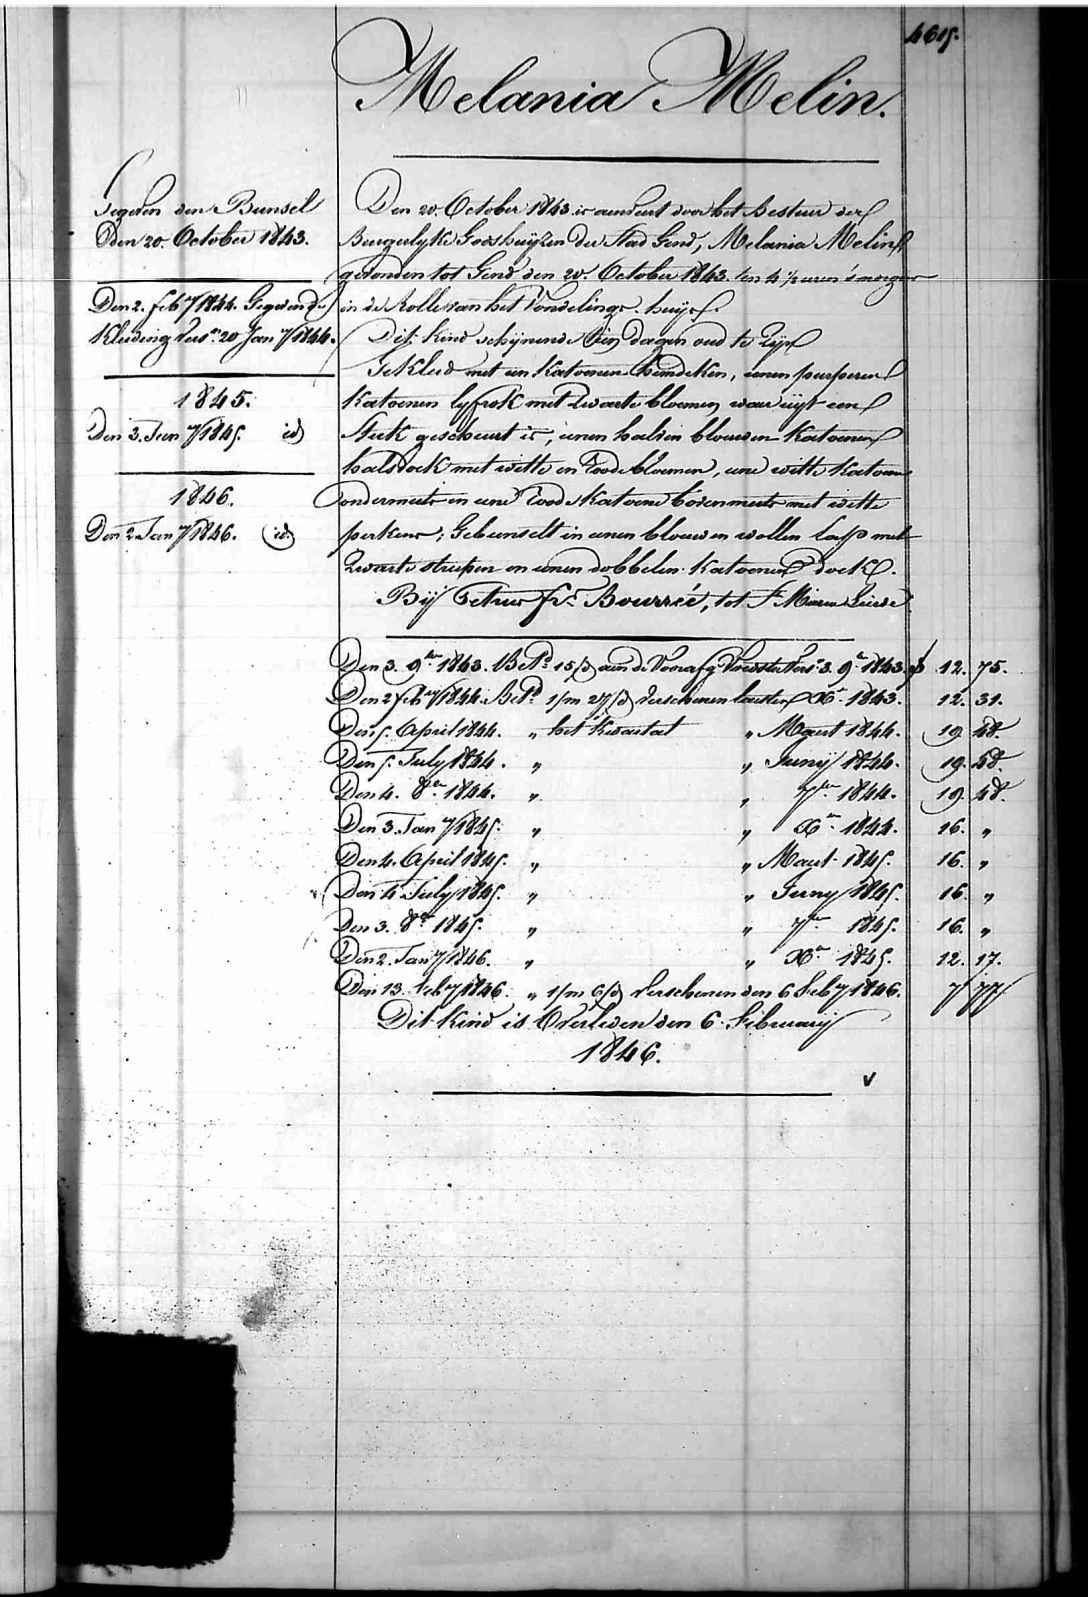 465.
Melania Melin.
Gegeven den Bunsel
Den 20. October 1843.
Den 2. feby 1844. Gegeven de
Kleeding vers. 20 Jany 1844.
1845.
Den 3. Jany 1845. id
1846.
Den 2 Jany 1846. id.
Den 20. October 1843 is aenveert door het Bestuer der
Burgerlyke Godshuijzen der Stad Gend, Melania Melin,
gevonden tot Gend den 20. October 1843. ten 4 1/2 uren 's morgens
in de Rolle van het Vondelings-huijs.
Dit kind schijnende dagen oud te Zijn
Gekleed met een Katoenen hemdeken, eenen purperen
Katoenen lyfrok met Zwarte bloemen, waer uijt een
Stuk gescheurt is, eenen halven blouwen Katoenen
halsdoek met witte en Roode bloemen, eene witte Katoene
ondermuts en eene Roode Katoene bovenmuts met witte
perken; Gebunselt in eenen blouwen wollen lap met
Zwarte streepen en eenen dobbelen Katoenen doek.
Bij Petrus fr. Bourrée, tot St Maria Lierde
Den 3. 9ber 1843. Bet. 15/d aen de Voorafg. Voedster vers. 3. 9ber 1843. f 12. 75.
Den 2 feby 1844. Betd 1/m 27/d verschenen lesten Xber 1843. 12. 31.
Den 5. April 1844. " het kwartael " Maert 1844. 19. 48.
Den 5. July 1844. " " Junij 1844. 19. 48.
Den 4. 8ber 1844. " " 7ber 1844. 19. 48.
Den 3. Jany 1845. " " Xber 1844. 16. "
Den 4. April 1845. " " Maert 1845. 16. "
Den 4 July 1845. " " Juny 1845. 16. "
Den 3. 8ber 1845. " " 7ber 1845. 16. "
Den 2. Jany 1846. " " Xber 1845. 12. 17.
Den 13. feby 1846. " 1/m 6/d verschenen den 6 feby 1846. 7 77
Dit kind is Overleden den 6. february
1846.
v